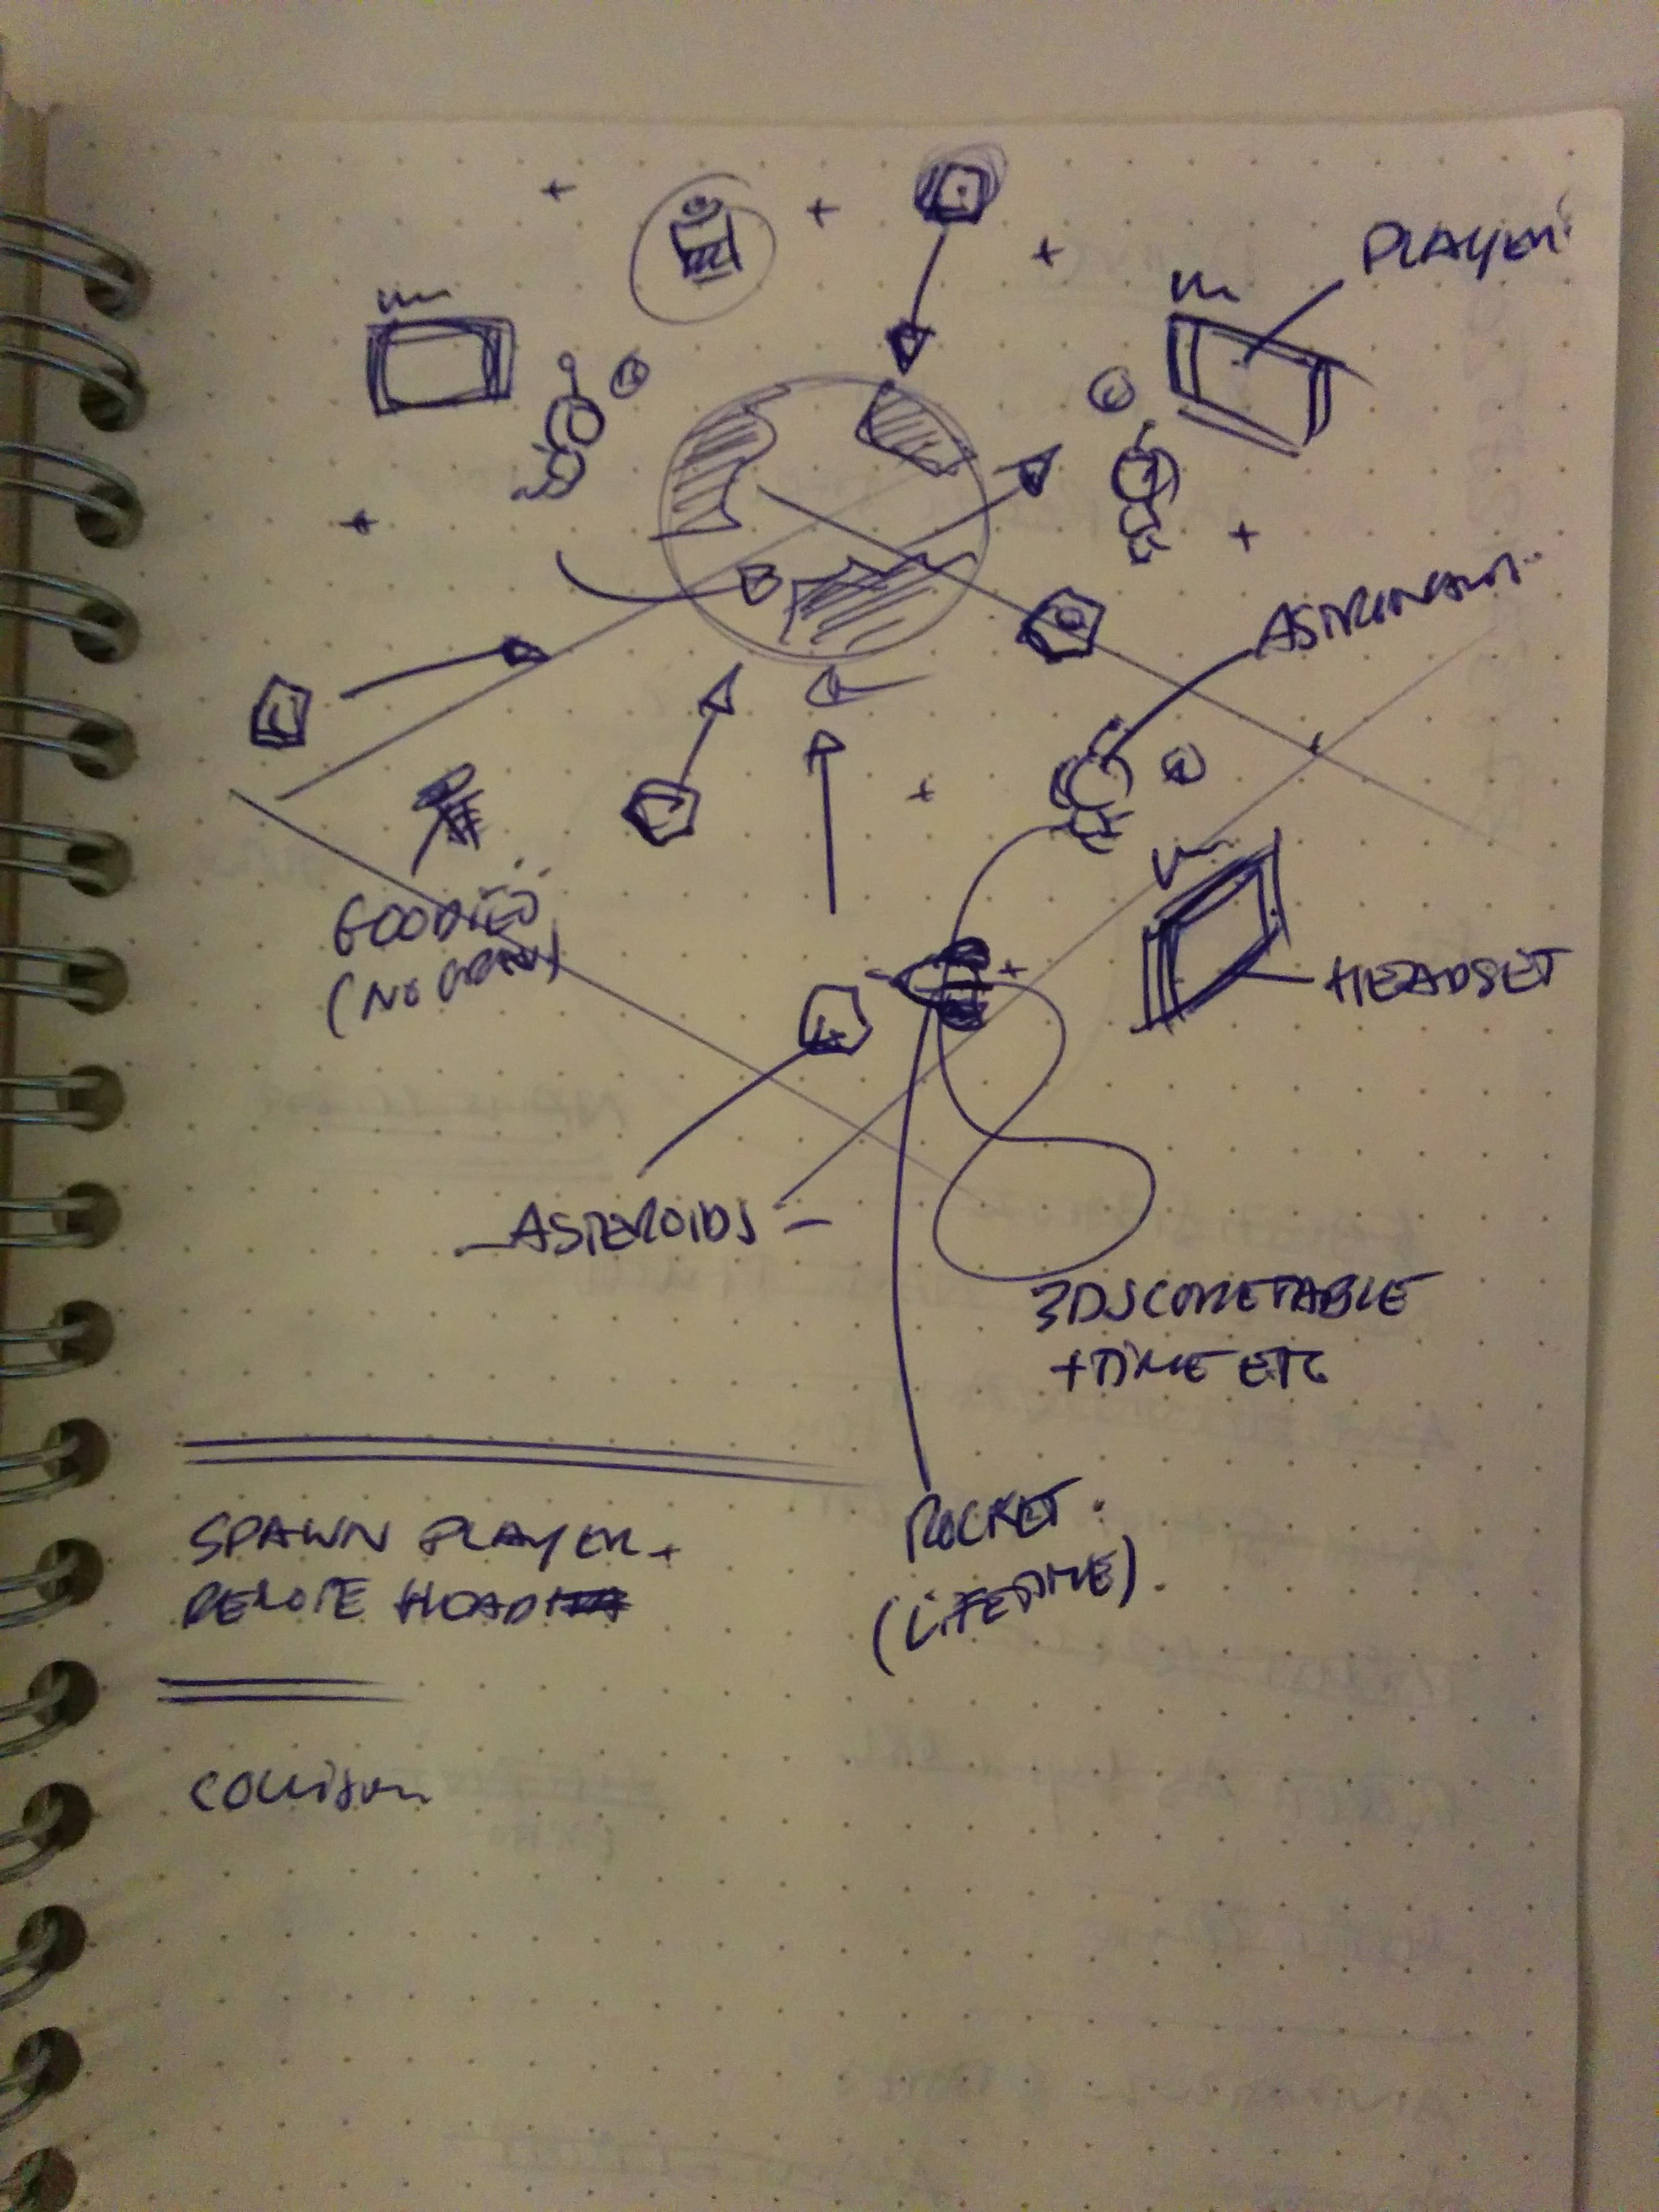 PLAYER
ASTRONAUT
GOODIES
(NO
HEADSET
ASTEROIDS
3D SCORETABLE
+ TIME ETC
ROCKET.
(LIFETIME).
SPAWN PLAYER +
REMOTE
COLLISION